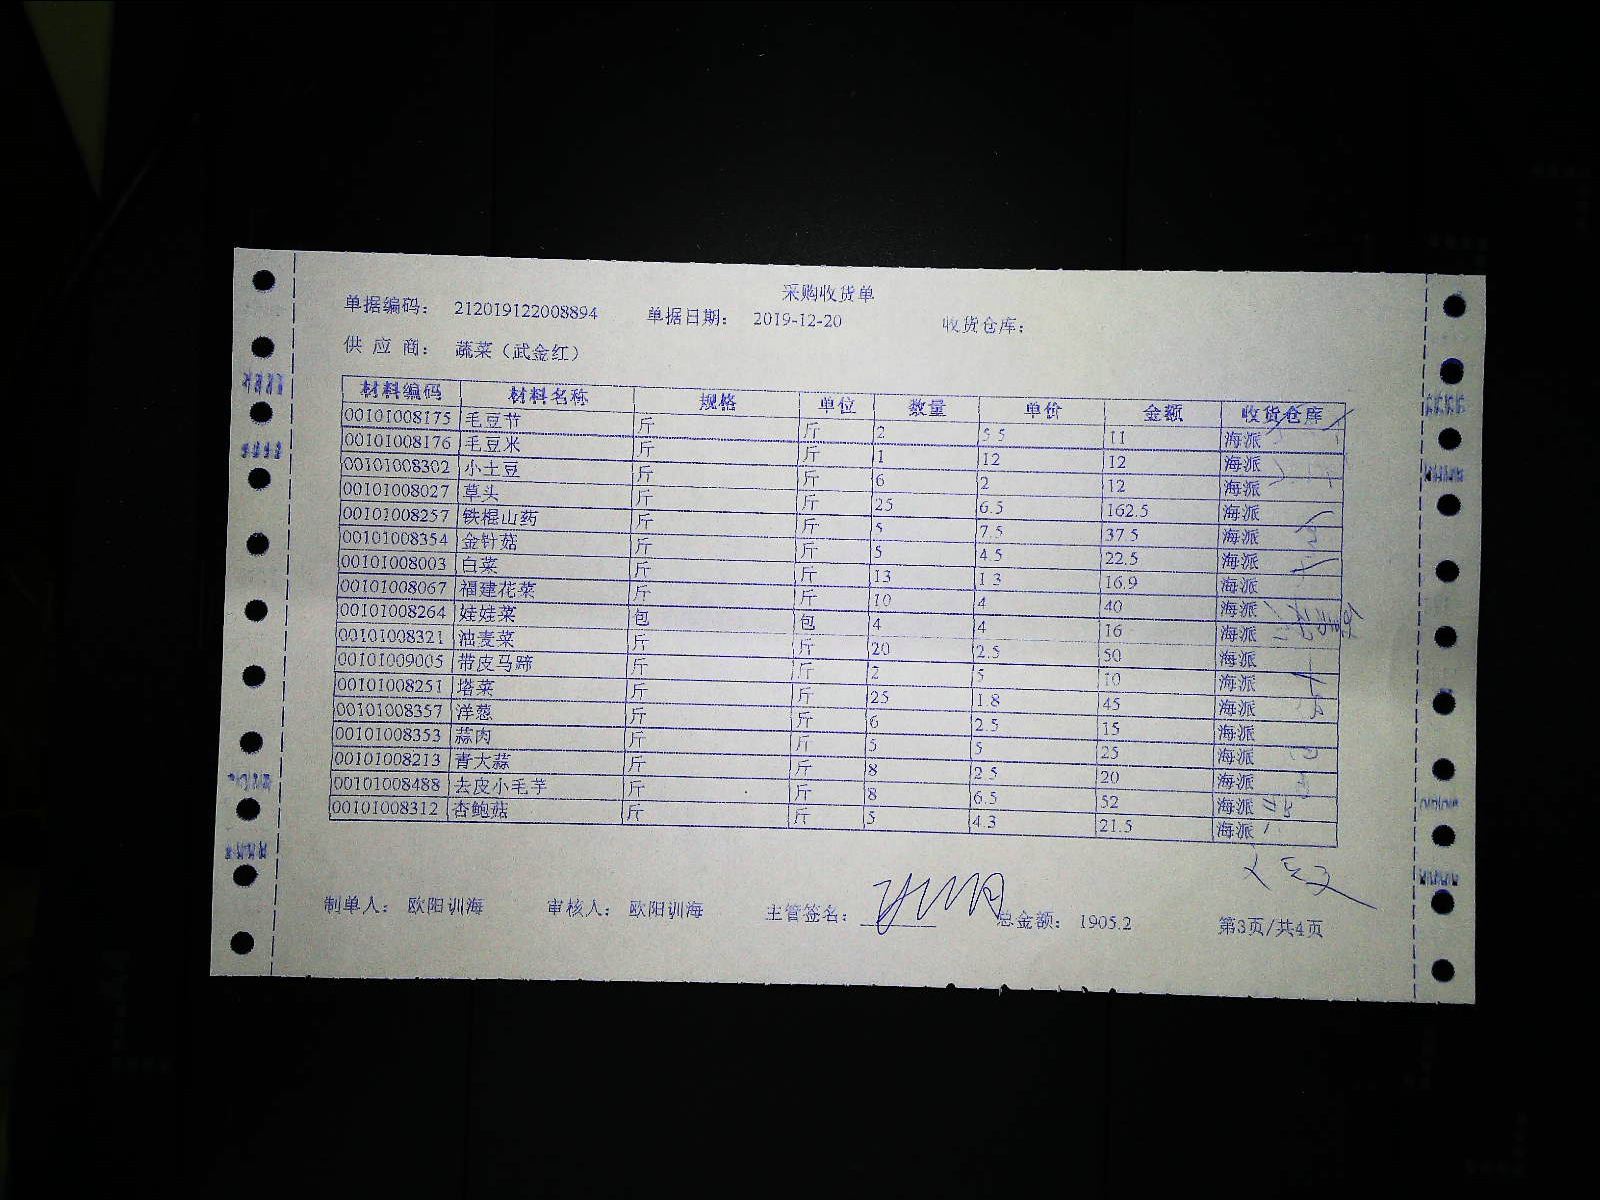 采购收货单
单据编码： 212019122008894 单据日期： 2019-12-20 收货仓库：
供 应 商： 蔬菜（武金红）
材料编码 材料名称 规格 单位 数量 单价 金额 收货仓库
00101008175 毛豆节 斤 斤 2 5.5 11 海派
00101008176 毛豆米 斤 斤 1 12 12 海派
00101008302 小土豆 斤 斤 6 2 12 海派
00101008027 草头 斤 斤 25 6.5 162.5 海派
00101008257 铁棍山药 斤 斤 5 7.5 37.5 海派
00101008354 金针菇 斤 斤 5 4.5 22.5 海派
00101008003 白菜 斤 斤 13 1.3 16.9 海派
00101008067 福建花菜 斤 斤 10 4 40 海派
00101008264 娃娃菜 包 包 4 4 16 海派
00101008321 油麦菜 斤 斤 20 2.5 50 海派
00101009005 带皮马蹄 斤 斤 2 5 10 海派
00101008251 塔菜 斤 斤 25 1.8 45 海派
00101008357 洋葱 斤 斤 6 2.5 15 海派
00101008353 蒜肉 斤 斤 5 5 25 海派
00101008213 青大蒜 斤 斤 8 2.5 20 海派
00101008488 去皮小毛芋 斤 斤 8 6.5 52 海派
00101008312 杏鲍菇 斤 斤 5 4.3 21.5 海派
制单人： 欧阳训海 审核人： 欧阳训海 主管签名： 总金额： 1905.2 第3页/共4页